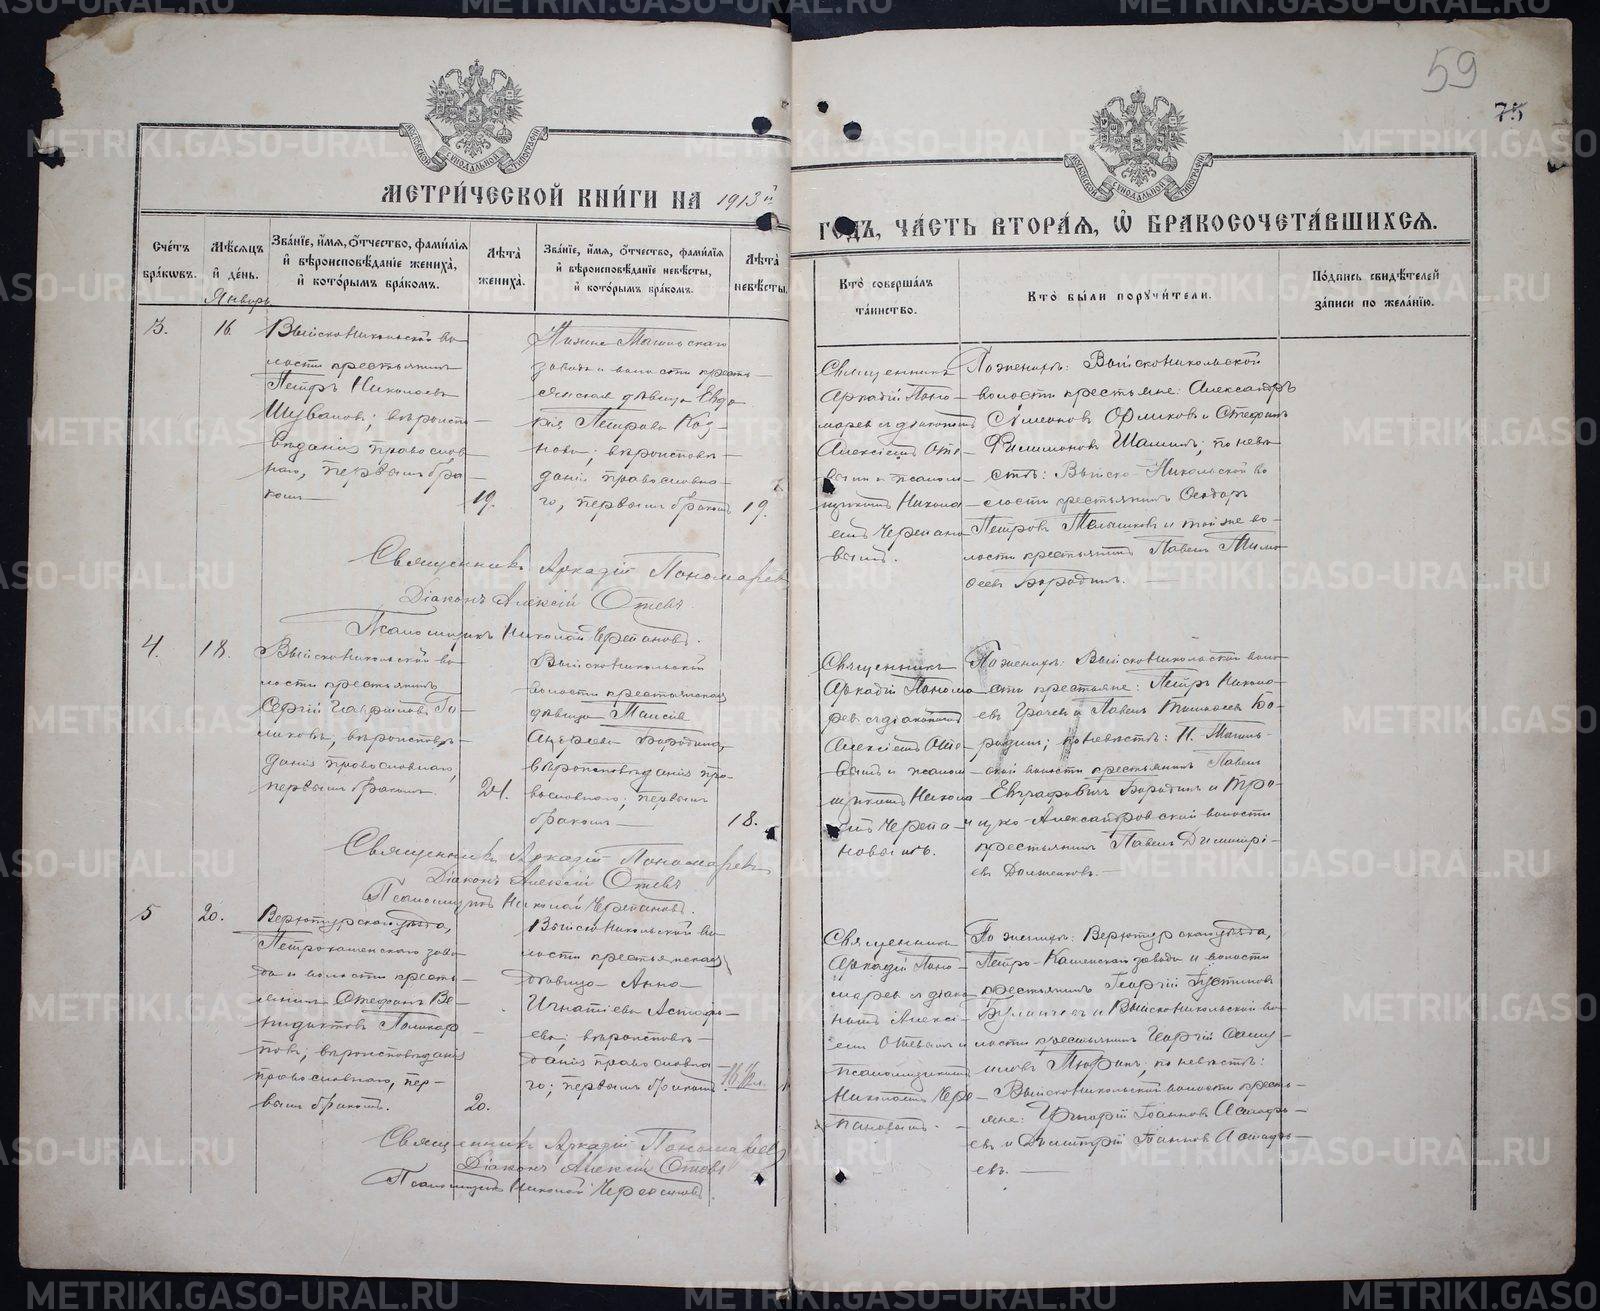 59
75
МОСКОВСКОЙ СѴНОДАЛЬНОЙ ТИПОГРАФІИ
МОСКОВСКОЙ СѴНОДАЛЬНОЙ ТИПОГРАФІИ
МЕТРИ́ЧЕСКОЙ КНИ́ГИ НА 1913й
ГОДЪ, ЧА́СТЬ ВТОРА́Я, Ѡ БРАКОСОЧЕТА́ВШИХСЯ.
Сче́тъ бра́ковъ.
Мѣ́сяцъ и де́нь.
Зва́ніе, и́мя, о́тчество, фами́лія и вѣроисповѣ́даніе жениха̀, и кото́рымъ бра́комъ.
Лѣта̀ жениха̀.
Зва́ніе, и́мя, о́тчество, фами́лія и вѣроисповѣ́даніе невѣ́сты, и кото́рымъ бра́комъ.
Лѣта̀ невѣ́сты.
Кто̀ соверша́лъ та́инство.
Кто̀ бы́ли поручи́тели.
По́дпись свидѣ́телей за́писи по жела́нію.
Январь
3.
16.
Выйсконикольской во-
лости крестьянинъ
Петръ Николаевъ
Шуваловъ; вѣроиспо-
вѣданія православ-
наго, первымъ бра-
комъ
19.
Нижне Тагильскаго
завода и волости кресть-
янская дѣвица Евдо-
кія Петрова Коз-
нова; вѣроисповѣ-
данія православна-
го, первымъ бракомъ
19.
Священникъ
Аркадій Поно-
маревъ съ діакономъ
Алексіемъ Оте-
вымъ и псалом-
щикомъ Никола-
емъ Черепано-
вымъ.
По женихѣ: Выйсконикольской
волости крестьяне: Александръ
и Стефанъ
Филимоновъ Шаминъ; по невѣ-
стѣ: Выйско-Никольской во-
лости крестьянинъ Ѳеодоръ
Петровъ Мельниковъ и той же во-
лости крестьянинъ Павелъ Тимо-
ѳеевъ Бородинъ.
Священникъ Аркадій Пономаревъ
Діаконъ Алексій Отевъ
Псаломщикъ Николай Черепановъ.
4.
18.
Выйсконикольской во-
лости крестьянинъ
Сергій Гавріиловъ Го-
ликовъ, вѣроисповѣ-
данія православнаго,
первымъ бракомъ.
24.
Выйсконикольской
волости крестьянская
дѣвица Таисія
Андреева Бородина,
вѣроисповѣданія пра-
вославнаго; первымъ
бракомъ
18.
Священникъ
Аркадій Понома-
ревъ съ діакономъ
Алексіемъ Оте-
вымъ и псалом-
щикомъ Никола-
емъ Черепа-
новымъ.
По женихѣ: Выйсконикольской воло-
сти крестьяне: Петръ Никола-
евъ Грачевъ и Павелъ Бо-
родинъ; по невѣстѣ: Н. Тагиль-
ской волости крестьянинъ Павелъ
Евграфовичъ Бородинъ и Тро-
ицко-Александровской волости
крестьянинъ Павелъ Димитрі-
евъ Долженковъ.
Священникъ Аркадій Пономаревъ
Діаконъ Алексій Отевъ
Псаломщикъ Николай Черепановъ.
5
20.
Верхотурскаго уѣзда,
Петрокаменскаго заво-
да и волости кресть-
янинъ Стефанъ Ве-
недиктовъ Поликар-
повъ; вѣроисповѣданія
православнаго, пер-
вымъ бракомъ.
20.
Выйсконикольской во-
лости крестьянская
дѣвица Анна
Игнатіева Астафь-
ева; вѣроисповѣ-
данія православна-
го; первымъ бракомъ.
16 ½ л.
Священникъ
Аркадій Поно-
маревъ съ діако-
номъ Алексі-
емъ Отевымъ и
псаломщикомъ
Николаемъ Чере-
пановымъ.
По женихѣ: Верхотурскаго уѣзда,
Петро-Каменскаго завода и волости
крестьянинъ Георгій Іустиновъ
и Выйсконикольской во-
лости крестьянинъ Георгій
по невѣстѣ:
Выйсконикольской волости кресть-
яне: Григорій Іоанновъ Астафь-
евъ и Димитрій Іоанновъ Астафь-
евъ.
Священникъ Аркадій Пономаревъ
Діаконъ Алексій Отевъ
Псаломщикъ Николай Черепановъ.
METRIKI.GASO-URAL.RU